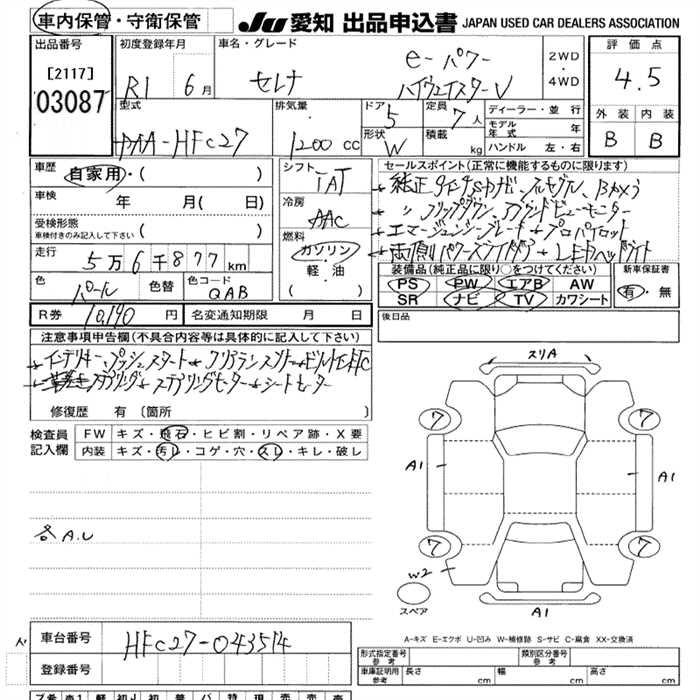 車内保管・守衛保管
JU 愛知 出品申込書 JAPAN USED CAR DEALERS ASSOCIATION
出品番号 初度登録年月 車名・グレード 評価点
[2117] e-パワー 2WD
03087 R1 6月 セレナ ハイウェイスターV 4WD 4.5
型式 排気量 ドア 定員 ディーラー・並行 外装 内装
DAA-HFC27 1200 cc 5 7人 モデル年式 年 B B
形状 W 積載 kg ハンドル 左・右
車歴 自家用・( ) シフト IAT セールスポイント(正常に機能するものに限ります)
車検 年 月( 日) 冷房 AAC
純正9インチSDナビ、フルセグTV、Bカメラ
〃 フリップダウン、アラウンドビューモニター
受検形態 ・( )
車検付きのみ記入して下さい
燃料 ガソリン・軽油・( )
エマージェンシーブレーキ プロパイロット
両側パワースライドドア LEDヘッドライト
走行 5万6千877km
装備品(純正品に限り○をつけてください) 新車保証書
色 パール 色替 色コード QAB
PS PW エアB AW 有・無
SR ナビ TV カワシート
R券 10,190円 名変通知期限 月 日 後日品
注意事項申告欄(不具合内容等は具体的に記入して下さい)
インテリキー プッシュスタート クリアランスソナー ビルトインETC
ステアリングヒーター シートヒーター
修復歴 有 〔箇所 〕
検査員記入欄 FW キズ・飛石・ヒビ割・リペア跡・X要
内装 キズ・汚レ・コゲ・穴・スレ・キレ・破レ
スリA
7 7
A1 A1
各A.U
7 7
W2
スペア A1
A-キズ E-エクボ U-凹み W-補修跡 S-サビ C-腐食 XX-交換済
車台番号 HFC27-043514
登録番号
形式指定番号 参考 類別区分番号 参考
車庫証明用 参考 長さ cm 幅 cm 高さ cm